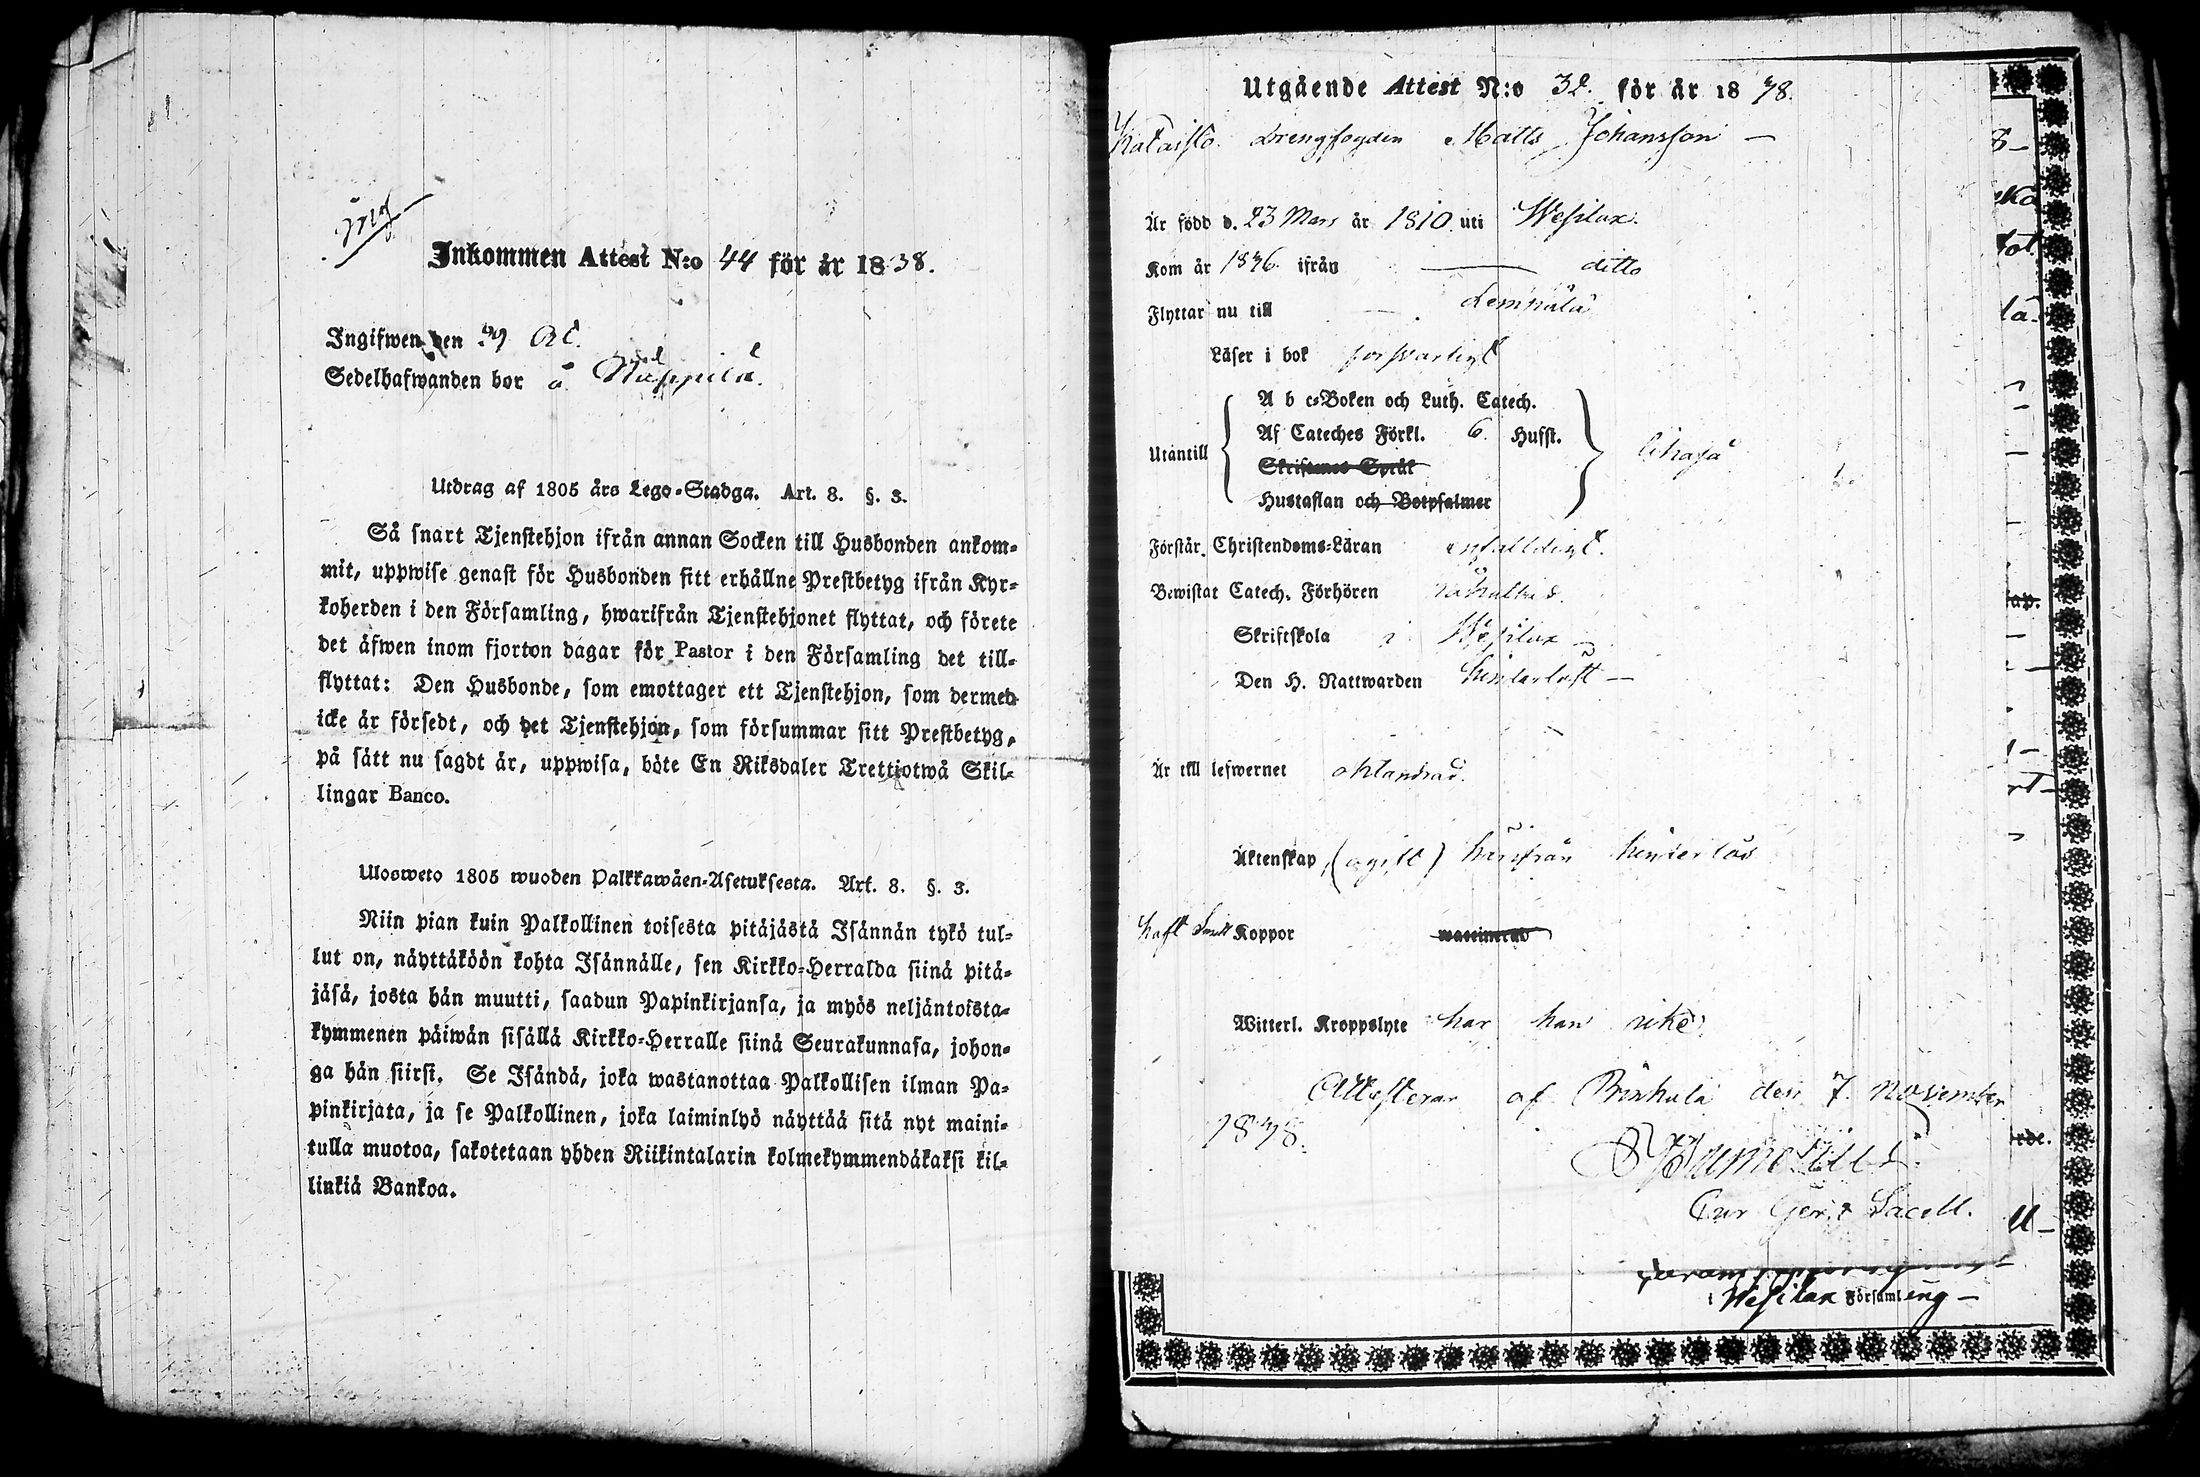 Inkommen Attest N:o 44 för år 1838.
Ingifwen den 29 Oct.
Sedelhafwanden bor å
Utdrag af 1805 års Lego-Stadga. Art. 8. §. 3.
Så snart Tjenstehjon ifrån annan Socken till Husbonden ankom-
mit, uppwise genast för Husbonden sitt erhållne Prestbetyg ifrån Kyr-
koherden i den Församling, hwarifrån Tjenstehjonet flyttat, och förete
det äfwen inom fjorton dagar för Pastor i den Församling det till-
flyttat: Den Husbonde, som emottager ett Tjenstehjon, som dermed
icke är försedt, och det Tjenstehjon, som försummar sitt Prestbetyg,
på sätt nu sagdt är, uppwisa, böte En Riksdaler Trettiotwå Skil-
lingar Banco.
Ulosweto 1805 wuoden Palkkawäen-Asetuksesta. Art. 8. §. 3.
Niin pian kuin Palkollinen toisesta pitäjästä Isännän tykö tul-
lut on, näyttäköön kohta Isännälle, sen Kirkko-Herralda siinä pitä-
jäsä, josta hän muutti, saadun Papinkirjansa, ja myös neljäntoista-
kymmenen päiwän sisällä Kirkko-Herralle siinä Seurakunnasa, johon-
ga hän siirsi. Se Isändä, joka wastanottaa Palkollisen ilman Pa-
pinkirjata, ja se Palkollinen, joka laiminlyö näyttää sitä nyt maini-
tulla muotoa, sakotetaan yhden Riikintalarin kolmekymmendäkaksi kil-
linkiä Bankoa.
Utgående Attest N:o 32. för år 1838.
Drengfogden Matts Johansson
Är född d. 23 Mars år 1810 uti Wesilax.
Kom år 1836 ifrån ditto
Flyttar nu till Lempälä
Läser i bok försvarligt
Utantill
A b c-Boken och Luth. Catech.
Af Cateches Förkl. 6. Hufst.
Skriftenes Språk
Hustaflan och Botpsalmer
Förstår Christendoms-Läran enfalldigt.
Bewistat Catech. Förhören
Skriftskola i Wesilax
Den H. Nattwarden hinderlöst
Är till lefwernet oklandrad.
Äktenskap, (ogift) härifrån hinderlös
haft Koppor
Witterl. Kroppslyte har han icke
Attesterar af den 7. November
1838.
Sacell.
i Wesilax Församling